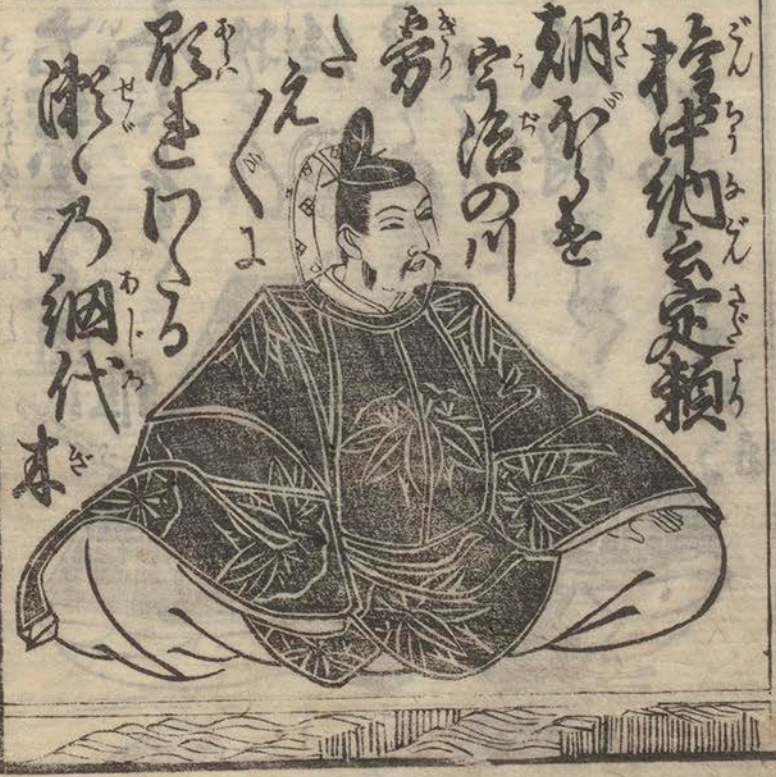 権中納言定頼
朝ぼらけ
宇治の川
霧
た
え〲に
顕れわたる
瀬々乃網代
木